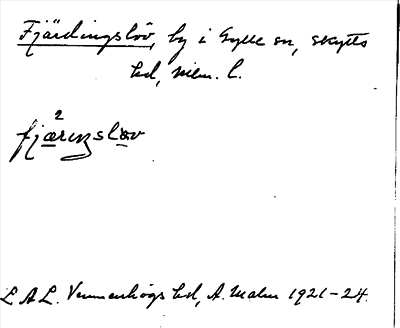 Fjärdingslöv, by i Gylle sn, Skytts
hd, Mlm. l.
fjæ²rɩŋslöv
L A L. Vemmenhögs hd, A. Malm 1921-24.